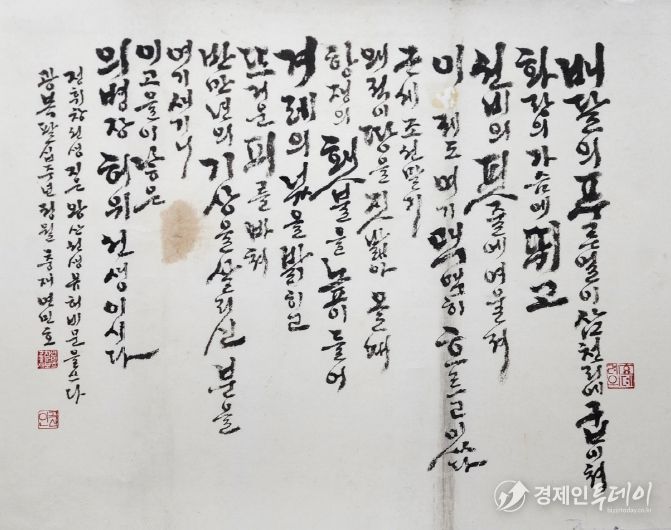 배달의 푸른 얼이 삼천리에 굽이쳐
화랑의 가슴에 뛰고
선비의 핏줄에 여울져
이제도 여기 맥맥히 흐르고 있다
근세 조선 말기
왜적이 땅을 짓밟아 올 때
항쟁의 횃불을 높이 들어
겨레의 넋을 밝히고
뜨거운 피를 바쳐
반만년의 기상을 살리신 분을
여기 새기니
이 고을이 낳은
의병장 허위 선생이시다
정휘창 선생 짓은 왕산 선생 유허비문을 쓰다
광복 팔십주년 정월 중재 면민호
경제인투데이
bizintoday.co.kr